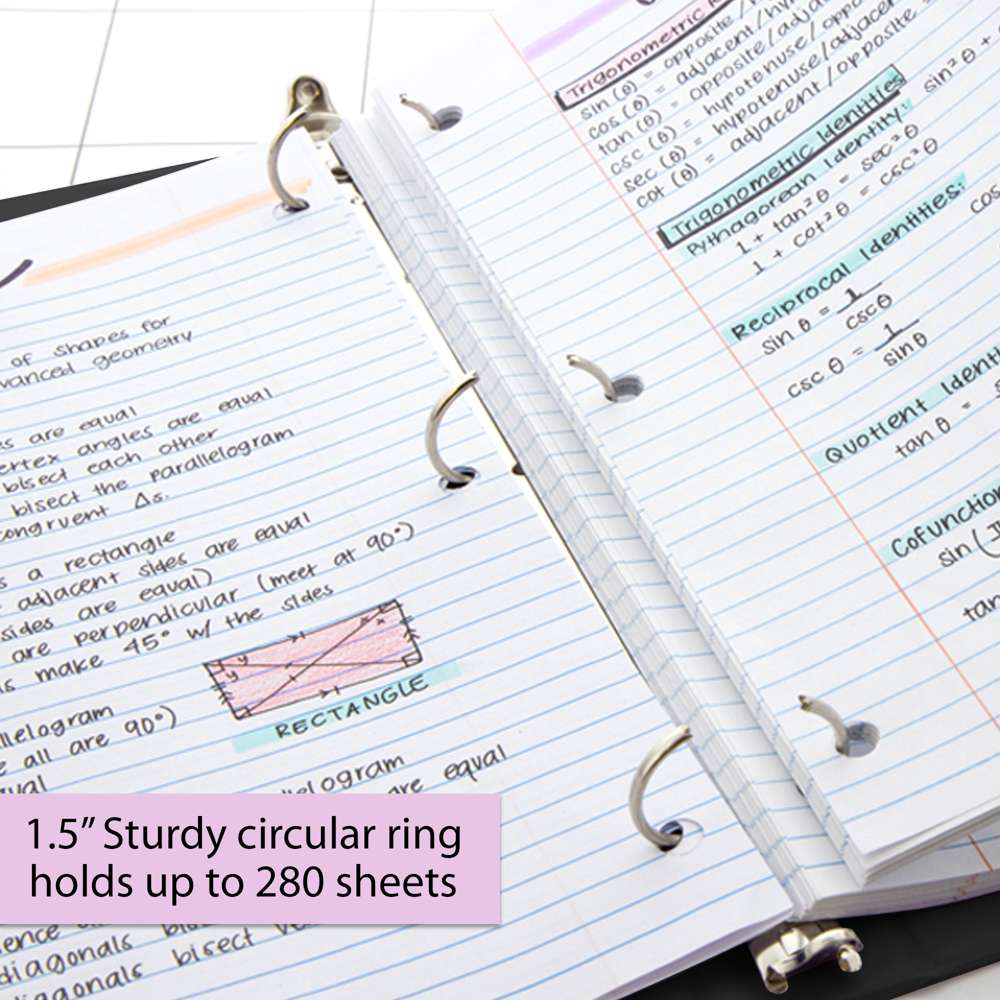 of shapes for
advanced geometry
es are equal
vertex angles are equal
bisect each other
bisect the parallelogram
congruent Δs.
s a rectangle
adjacent sides are equal
sides are equal)
are perpendicular (meet at 90°)
make 45° w/ the sides
y
y
x
x
RECTANGLE
llelogram
all are 90°)
ual
llelogram
are equal
1.5” Sturdy circular ring
holds up to 280 sheets
diagonals
diagonals bisect
Trigonometric
sin (θ) = opposite /
cos (θ) = adjacent/hyp
tan (θ) = opposite/adjac
csc (θ) = hypotenuse/oppo
sec (θ) = hypotenuse/adjacen
cot (θ) = adjacent /opposite
Trigonometric Identities
Pythagorean Identity:
sin²θ +
1 + tan²θ = sec²θ
1 + cot²θ = csc²θ
Reciprocal Identities:
sin θ = 1
cscθ
cos
csc θ = 1
sinθ
Quotient Identi
tan θ =
Cofunction
sin (
tan